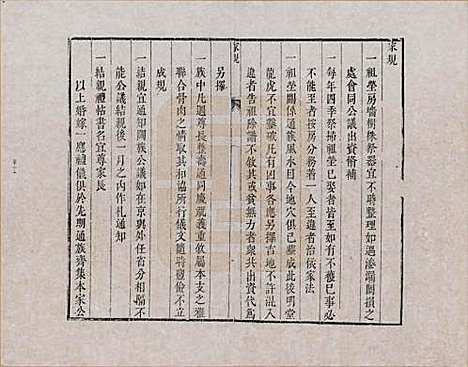 家規
一祖塋房牆樹株祭器宜不時整理如遇滲漏闕損之
處會同公議出資脩補
一每年四季祭掃祖塋已娶者皆至如有不獲已事必
不能至者按房分務着一人至違者治以家法
一祖塋關係通族風水日今地穴俱已塋成此後明堂
龍虎不宜鑿破凡有因事各應另擇吉地不許混入
違者告祖除譜不敘其或貧無力者衆共出資代爲
另擇
家規
一族中凡遇尊長整壽通同慶祝義重敘屬本支之雍
聯合骨肉之情取其和協所行儀文隨時適儉不
成規
一結親宜通知闔族公議如在京與外任省分相隔不
能公議結親後一月之內作札通知
一結親禮帖書名宜尊家長
以上婚嫁一應禮儀俱於先期通族齊集本家公